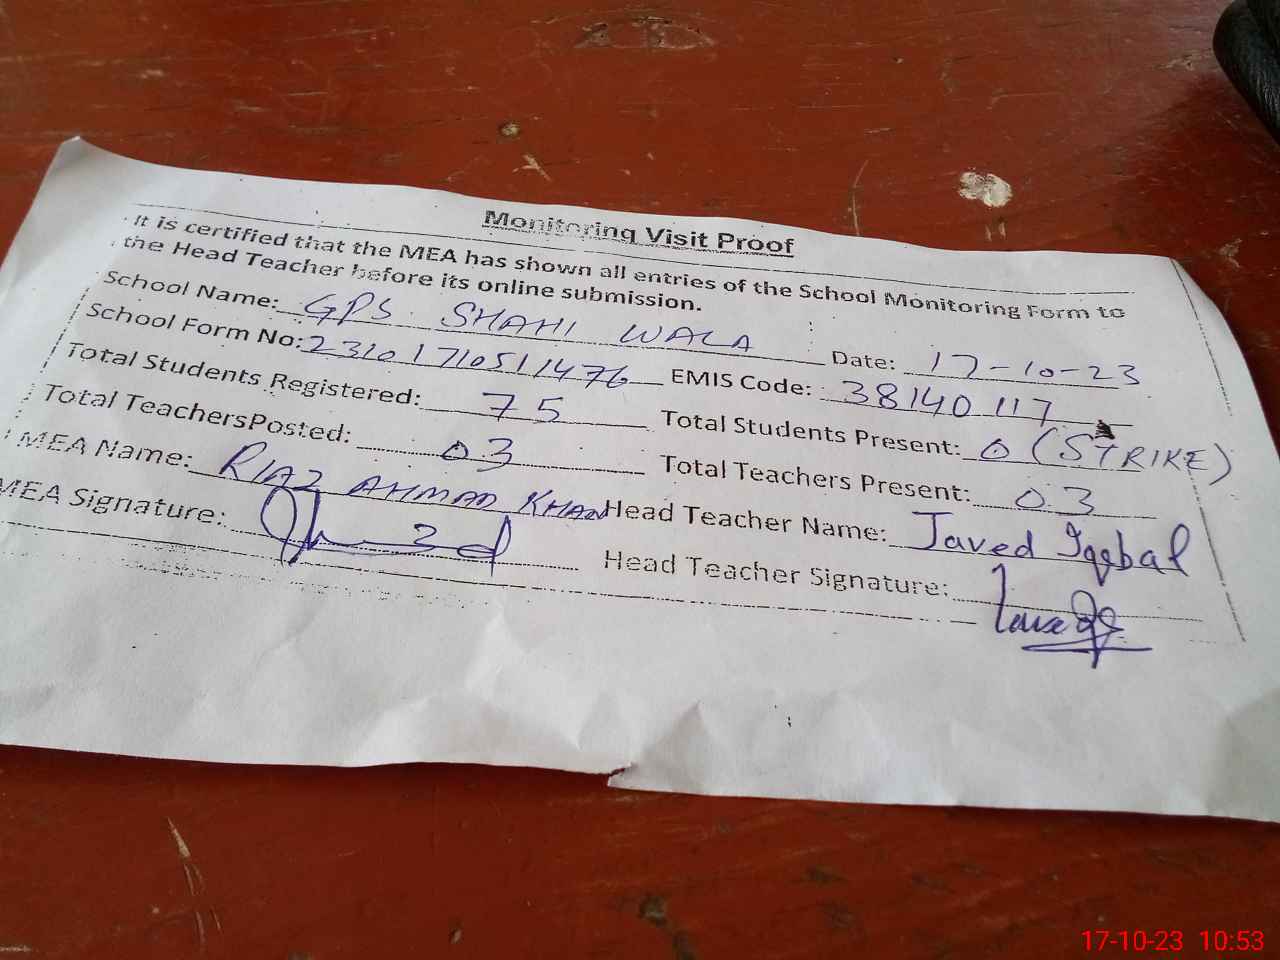 Monitoring Visit Proof
It is certified that the MEA has shown all entries of the School Monitoring Form to
the Head Teacher before its online submission.
School Name: GPS SHAHI WALA Date: 17-10-23
School Form No: 23101710511476 EMIS Code: 38140117
Total Students Registered: 75 Total Students Present: 0 (STRIKE)
Total TeachersPosted: 03 Total Teachers Present: 03
MEA Name: RIAZ AHMAD KHAN Head Teacher Name: Javed Iqbal
MEA Signature: Head Teacher Signature:
17-10-23 10:53